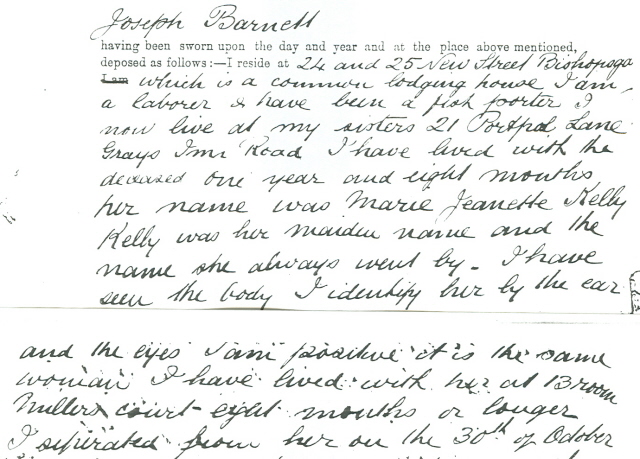 Joseph Barnett
having been sworn upon the day and year and at the place above mentioned,
deposed as follows:—I reside at 24 and 25 New Street Bishopsga
I am which is a common lodging house I am
a laborer & have been a fish porter I
now live at my sisters 21 Portpol Lane
Grays Inn Road I have lived with the
deceased one year and eight months
her name was Marie Jeanette Kelly
Kelly was her maiden name and the
name she always went by. I have
seen the body I identify her by the ear
and the eyes I am positive it is the same
woman I have lived with her at 13 room
Millers court eight months or longer
I seperated from her on the 30th of October